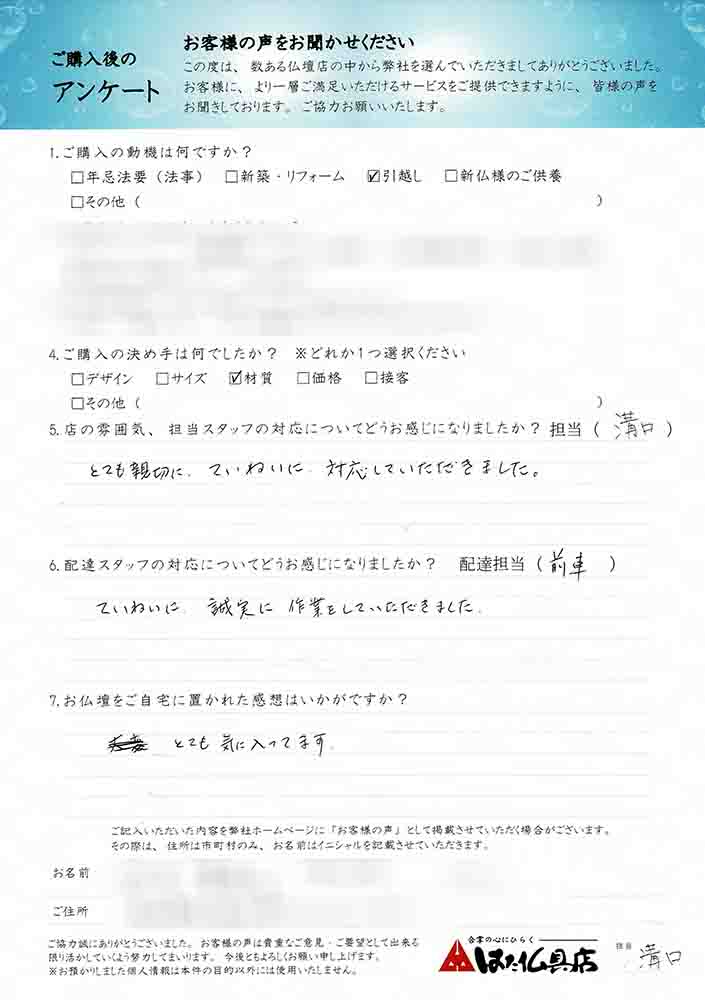 ご購入後の
アンケート
お客様の声をお聞かせください
この度は、数ある仏壇店の中から弊社を選んでいただきましてありがとうございました。
お客様に、より一層ご満足いただけるサービスをご提供できますように、皆様の声を
お聞きしております。ご協力お願いいたします。
1.ご購入の動機は何ですか？
□年忌法要（法事） □新築・リフォーム ☑引越し □新仏様のご供養
□その他（ ）
4.ご購入の決め手は何でしたか？ ※どれか1つ選択ください
□デザイン □サイズ ☑材質 □価格 □接客
□その他（ ）
5.店の雰囲気、担当スタッフの対応についてどうお感じになりましたか？担当（ 溝口 ）
とても親切に、ていねいに、対応していただきました。
6.配達スタッフの対応についてどうお感じになりましたか？ 配達担当（ 前車 ）
ていねいに、誠実に作業をしていただきました。
7.お仏壇をご自宅に置かれた感想はいかがですか？
とても気に入ってます。
ご記入いただいた内容を弊社ホームページに「お客様の声」として掲載させていただく場合がございます。
その際は、住所は市町村のみ、お名前はイニシャルを記載させていただきます。
お名前
ご住所
ご協力誠にありがとうございました。お客様の声は貴重なご意見・ご要望として出来る
限り活かしていくよう努力してまいります。今後ともよろしくお願い申し上げます。
※お預かりしました個人情報は本件の目的以外には使用いたしません。
合掌の心にひらく
はた仏具店
担当 溝口